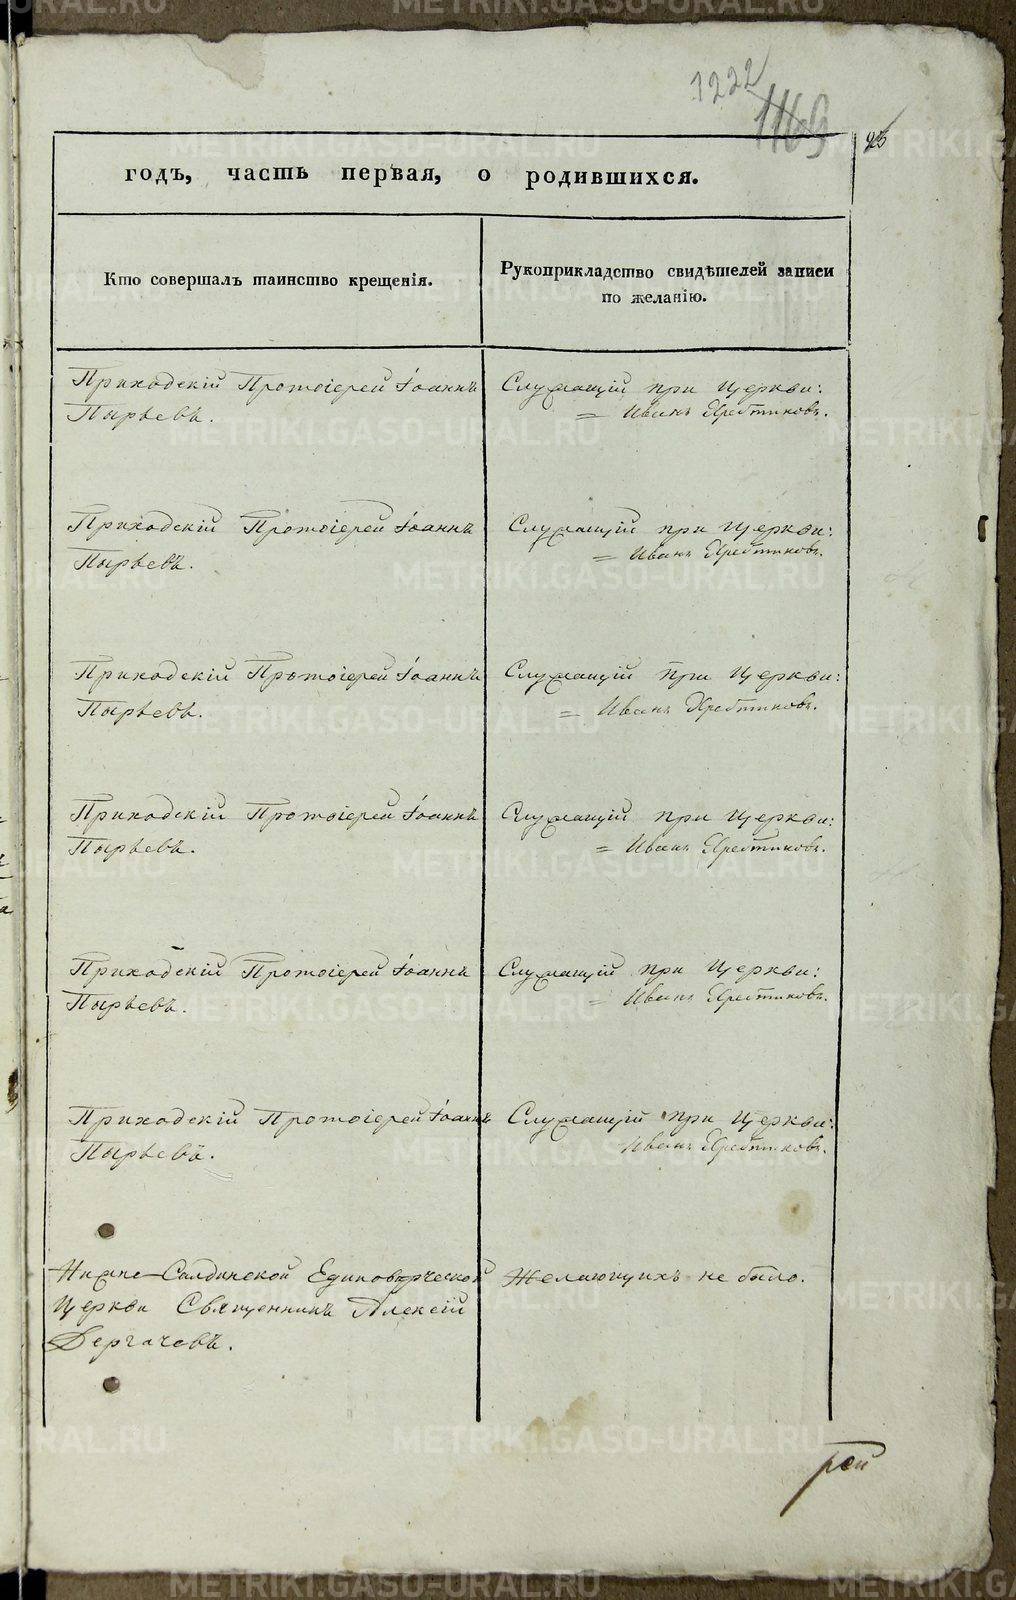 1222
1169
25
годъ, часть первая, о родившихся.
Кто совершалъ таинство крещенія.
Рукоприкладство свидѣтелей записи
по желанію.
Приходскій Протоіерей Іоаннъ
Пырьевъ.
Служащій при Церкви:
= Иванъ Хребтиковъ.
Приходскій Протоіерей Іоаннъ
Пырьевъ.
Служащій при Церкви:
= Иванъ Хребтиковъ.
Приходскій Протоіерей Іоаннъ
Пырьевъ.
Служащій при Церкви:
= Иванъ Хребтиковъ.
Приходскій Протоіерей Іоаннъ
Пырьевъ.
Служащій при Церкви:
= Иванъ Хребтиковъ.
Приходскій Протоіерей Іоаннъ
Пырьевъ.
Служащій при Церкви:
= Иванъ Хребтиковъ.
Приходскій Протоіерей Іоаннъ
Пырьевъ.
Служащій при Церкви:
Иванъ Хребтиковъ.
Нижне-Салдинской Единовѣрческой
Церкви Священникъ Алексій
Дергачевъ.
Желающихъ не было.
рей
METRIKI.GASO-URAL.RU